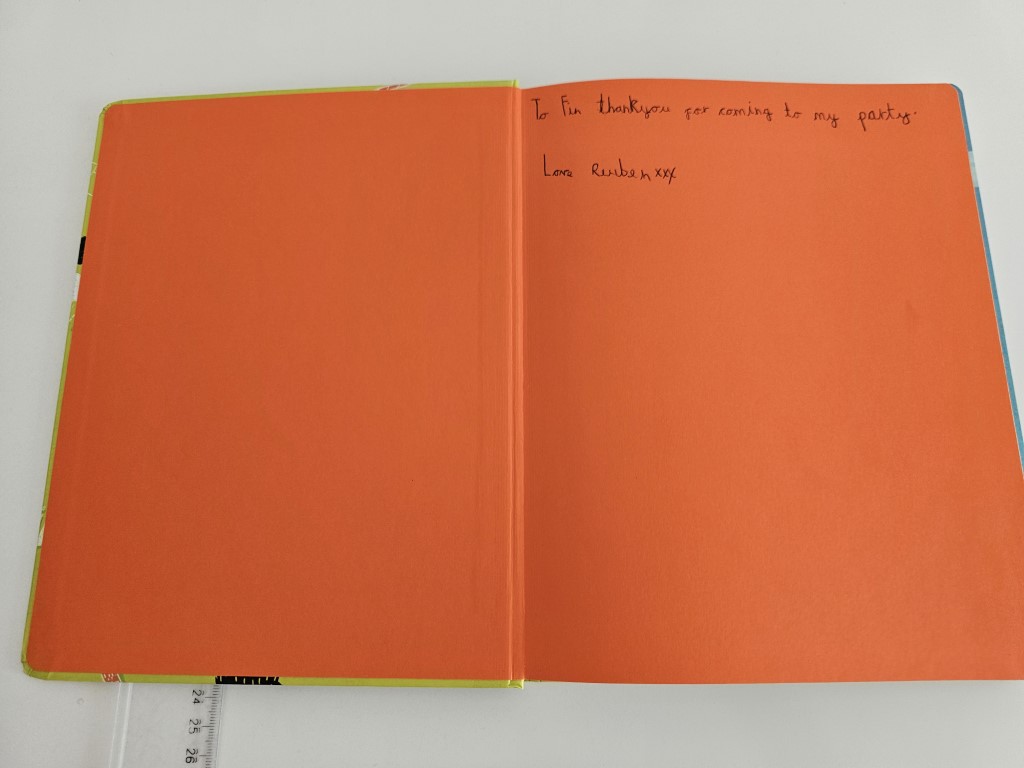 To Fin thankyou for coming to my party.
Love Reuben xxx
24
25
26